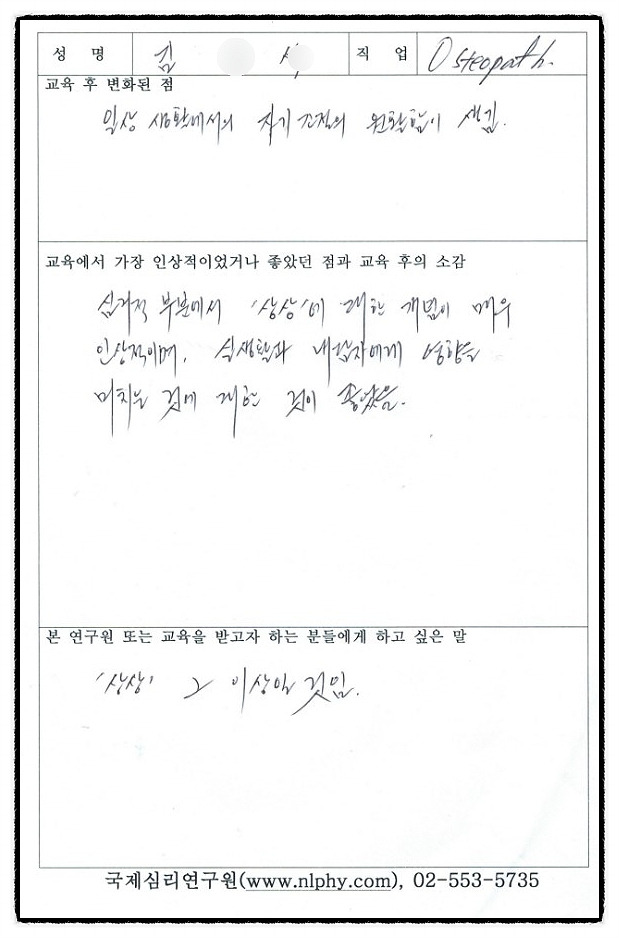 성 명 김 직 업 Osteopath.
교육 후 변화된 점
일상 생활에서의 자기 조절의 원활함이 생김.
교육에서 가장 인상적이었거나 좋았던 점과 교육 후의 소감
심리적 부분에서 '상상'에 대한 개념이 매우
인상적이며, 실생활과 내담자에게 영향을
미치는 것에 대한 것이 좋았음.
본 연구원 또는 교육을 받고자 하는 분들에게 하고 싶은 말
'상상' 그 이상일 것임.
국제심리연구원(www.nlphy.com), 02-553-5735